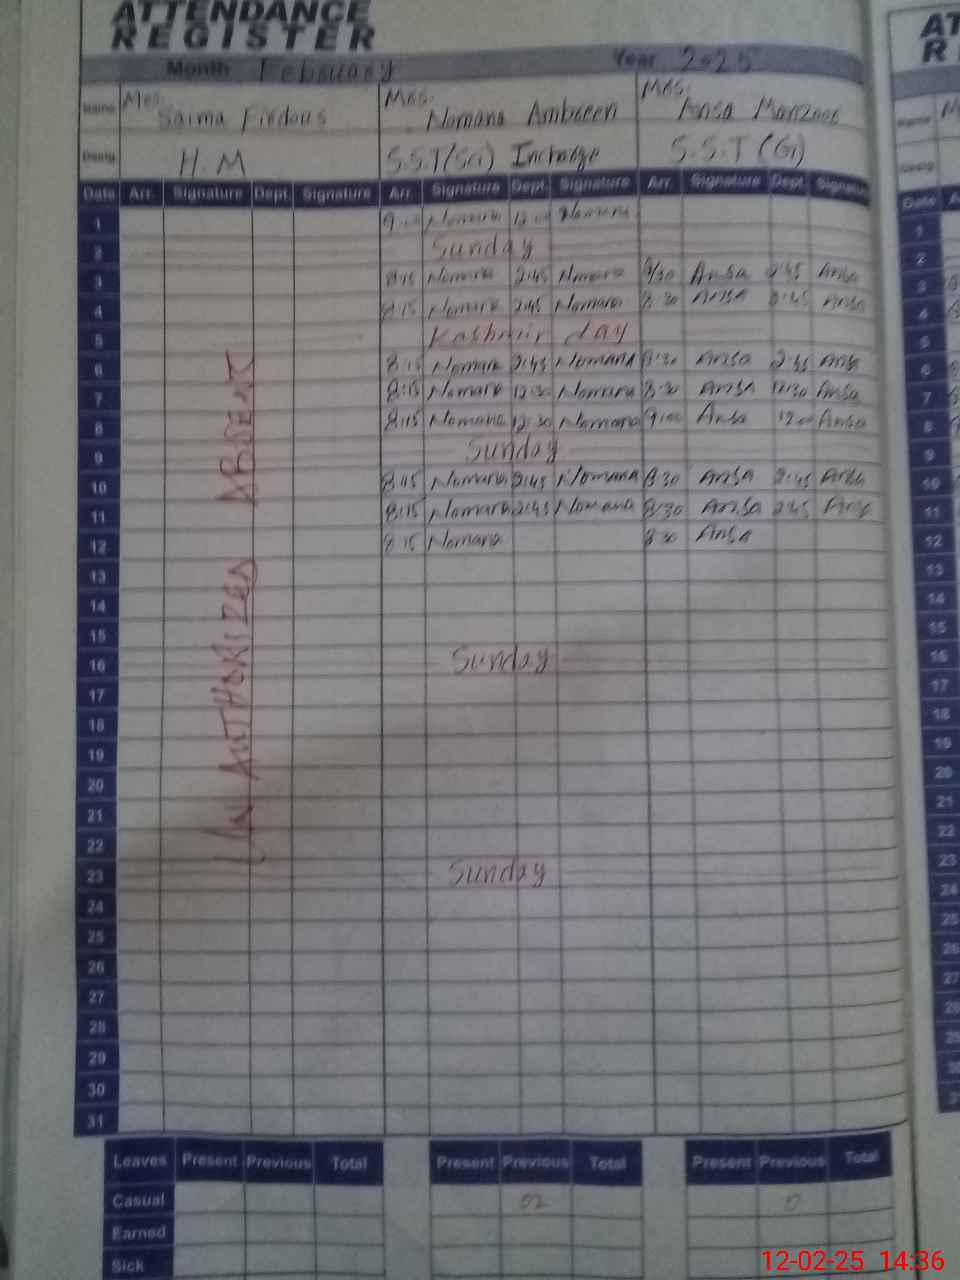 ATTENDANCE
REGISTER
Month February Year 2025
Name Mrs. Saima Firdous Mrs. Nomana Ambreen Mrs. Ansa Manzoor
Desig. H.M S.S.T(Sci) Incharge S.S.T (G)
Date Arr. Signature Dept. Signature Arr. Signature Dept. Signature Arr. Signature Dept. Signature
1 9:00 Nomana 12:00 Nomana
2 Sunday
3 8:15 Nomana 2:45 Nomana Ansa 2:45 Ansa
4 8:15 Nomana 2:45 Nomana 8:30 Ansa 2:45 Ansa
5 Kashmir day
6 8:15 Nomana 2:45 Nomana 8:30 Ansa 2:45 Ansa
7 8:15 Nomana 12:30 Nomana 8:30 Ansa 12:30 Ansa
8 8:15 Nomana 12:30 Nomana 9:00 Ansa 12:00 Ansa
9 Sunday
10 8:15 Nomana 2:45 Nomana 8:30 Ansa 2:45 Ansa
11 8:15 Nomana 2:45 Nomana 8:30 Ansa 2:45 Ansa
12 8:15 Nomana 8:30 Ansa
13
14
15
16 Sunday
17
18
19
20
21
22
23 Sunday
24
25
26
27
28
29
30
31
UN AUTHORIZED ABSENT
Leaves Present Previous Total Present Previous Total Present Previous Total
Casual 02 0
Earned
Sick
AT
R
Name
Desig.
Date A
1
2
3
4
5
6
7
8
9
10
11
12
13
14
15
16
17
18
19
20
21
22
23
24
25
26
27
12-02-25 14:36